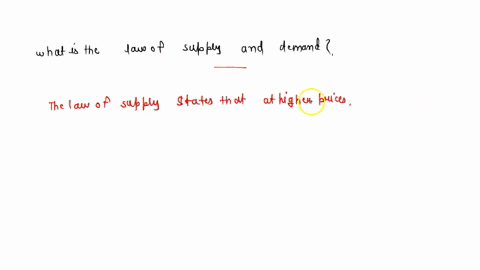 what is the law of supply and demand?
The law of supply states that at higher prices.